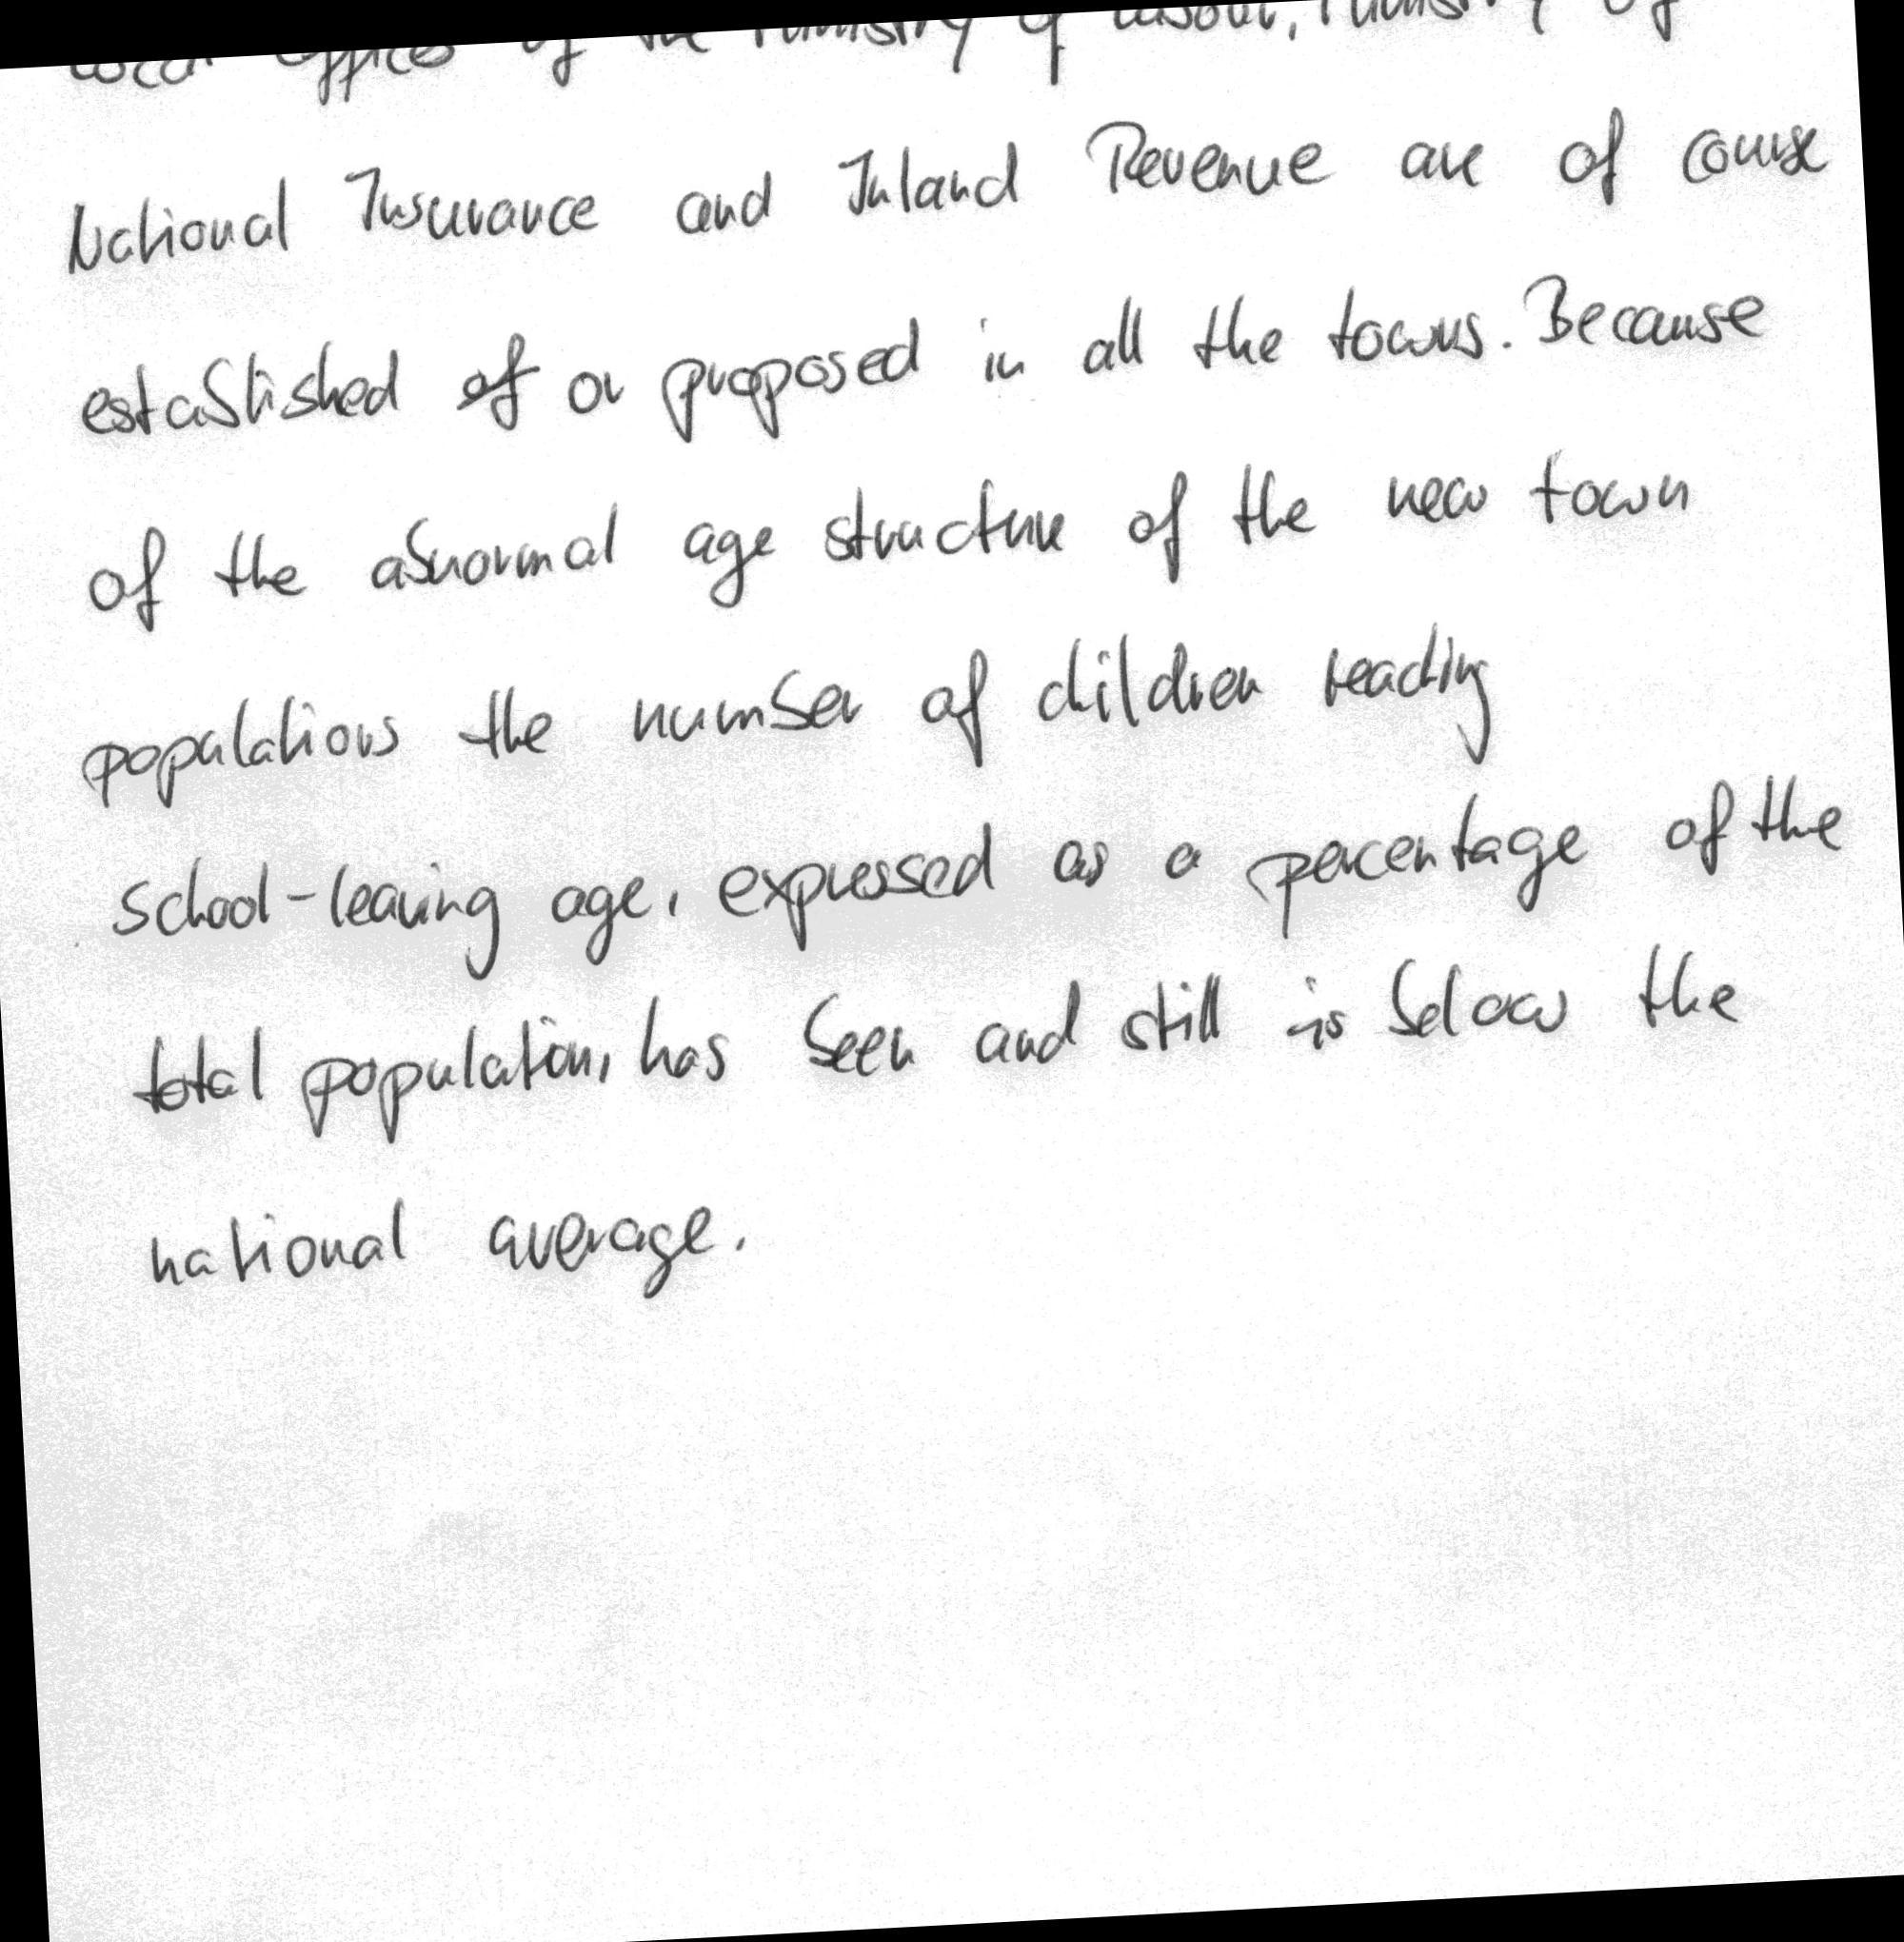 local offices of the Ministry of Labour, Ministry of
National Insurance and Inland Revenue are of course
established of or proposed in all the towns. Because
of the abnormal age structure of the new town
populations the number of children reaching
school-leaving age, expressed as a percentage of the
total population, has been and still is below the
national average.